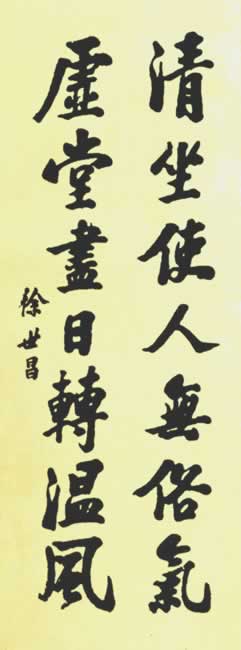 清坐使人無俗氣
虛堂盡日轉温風
徐世昌